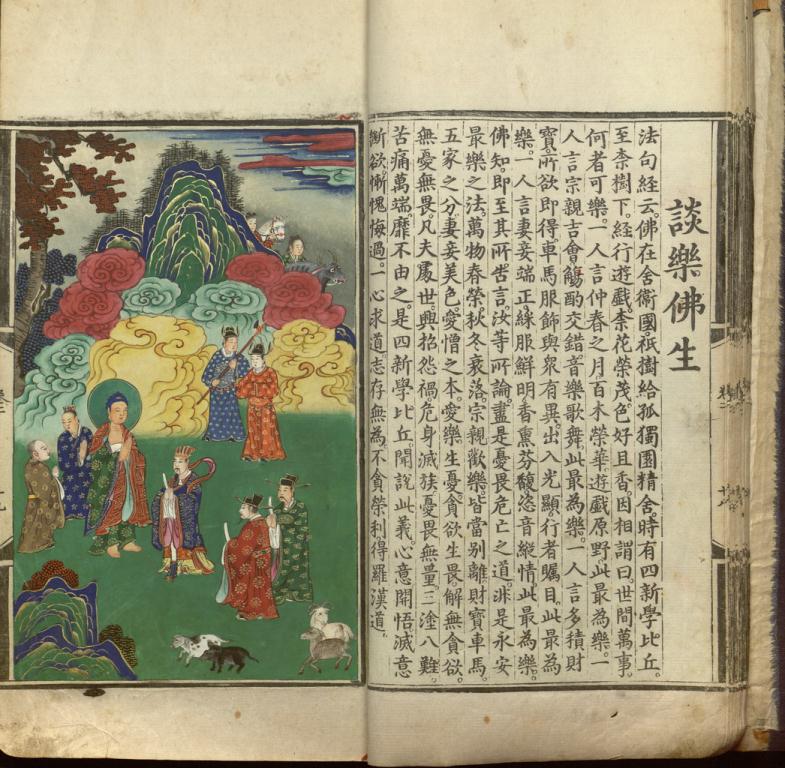 談樂佛生
法句經云。佛在舍衛國。祇樹給孤獨園精舍。時有四新學比丘。
至柰樹下。經行遊戲。柰花榮茂。色好且香。因相謂曰。世間萬事。
何者可樂。一人言仲春之月。百木榮華。遊戲原野。此最為樂。一
人言宗親吉會。觴酌交錯。音樂歌舞。此最為樂。一人言多積財
寶。所欲即得。車馬服飾。與眾有異。出入光顯。行者矚目。此最為
樂。一人言妻妾端正。綵服鮮明。香熏芬馥。恣音縱情。此最為樂。
佛知。即至其所告言。汝等所論。盡是憂畏危亡之道。非是永安
最樂之法。萬物春榮。秋冬衰落。宗親歡樂。皆當別離。財寶車馬。
五家之分。妻妾美色。愛憎之本。愛樂生憂。貪欲生畏。解無貪欲。
無憂無畏。凡夫處世。興招怨禍。危身滅族。憂畏無量。三塗八難。
苦痛萬端。靡不由之。是四新學比丘。聞說此義。心意開悟。滅意
斷欲。慚愧悔過。一心求道。志存無為。不貪榮利。得羅漢道。